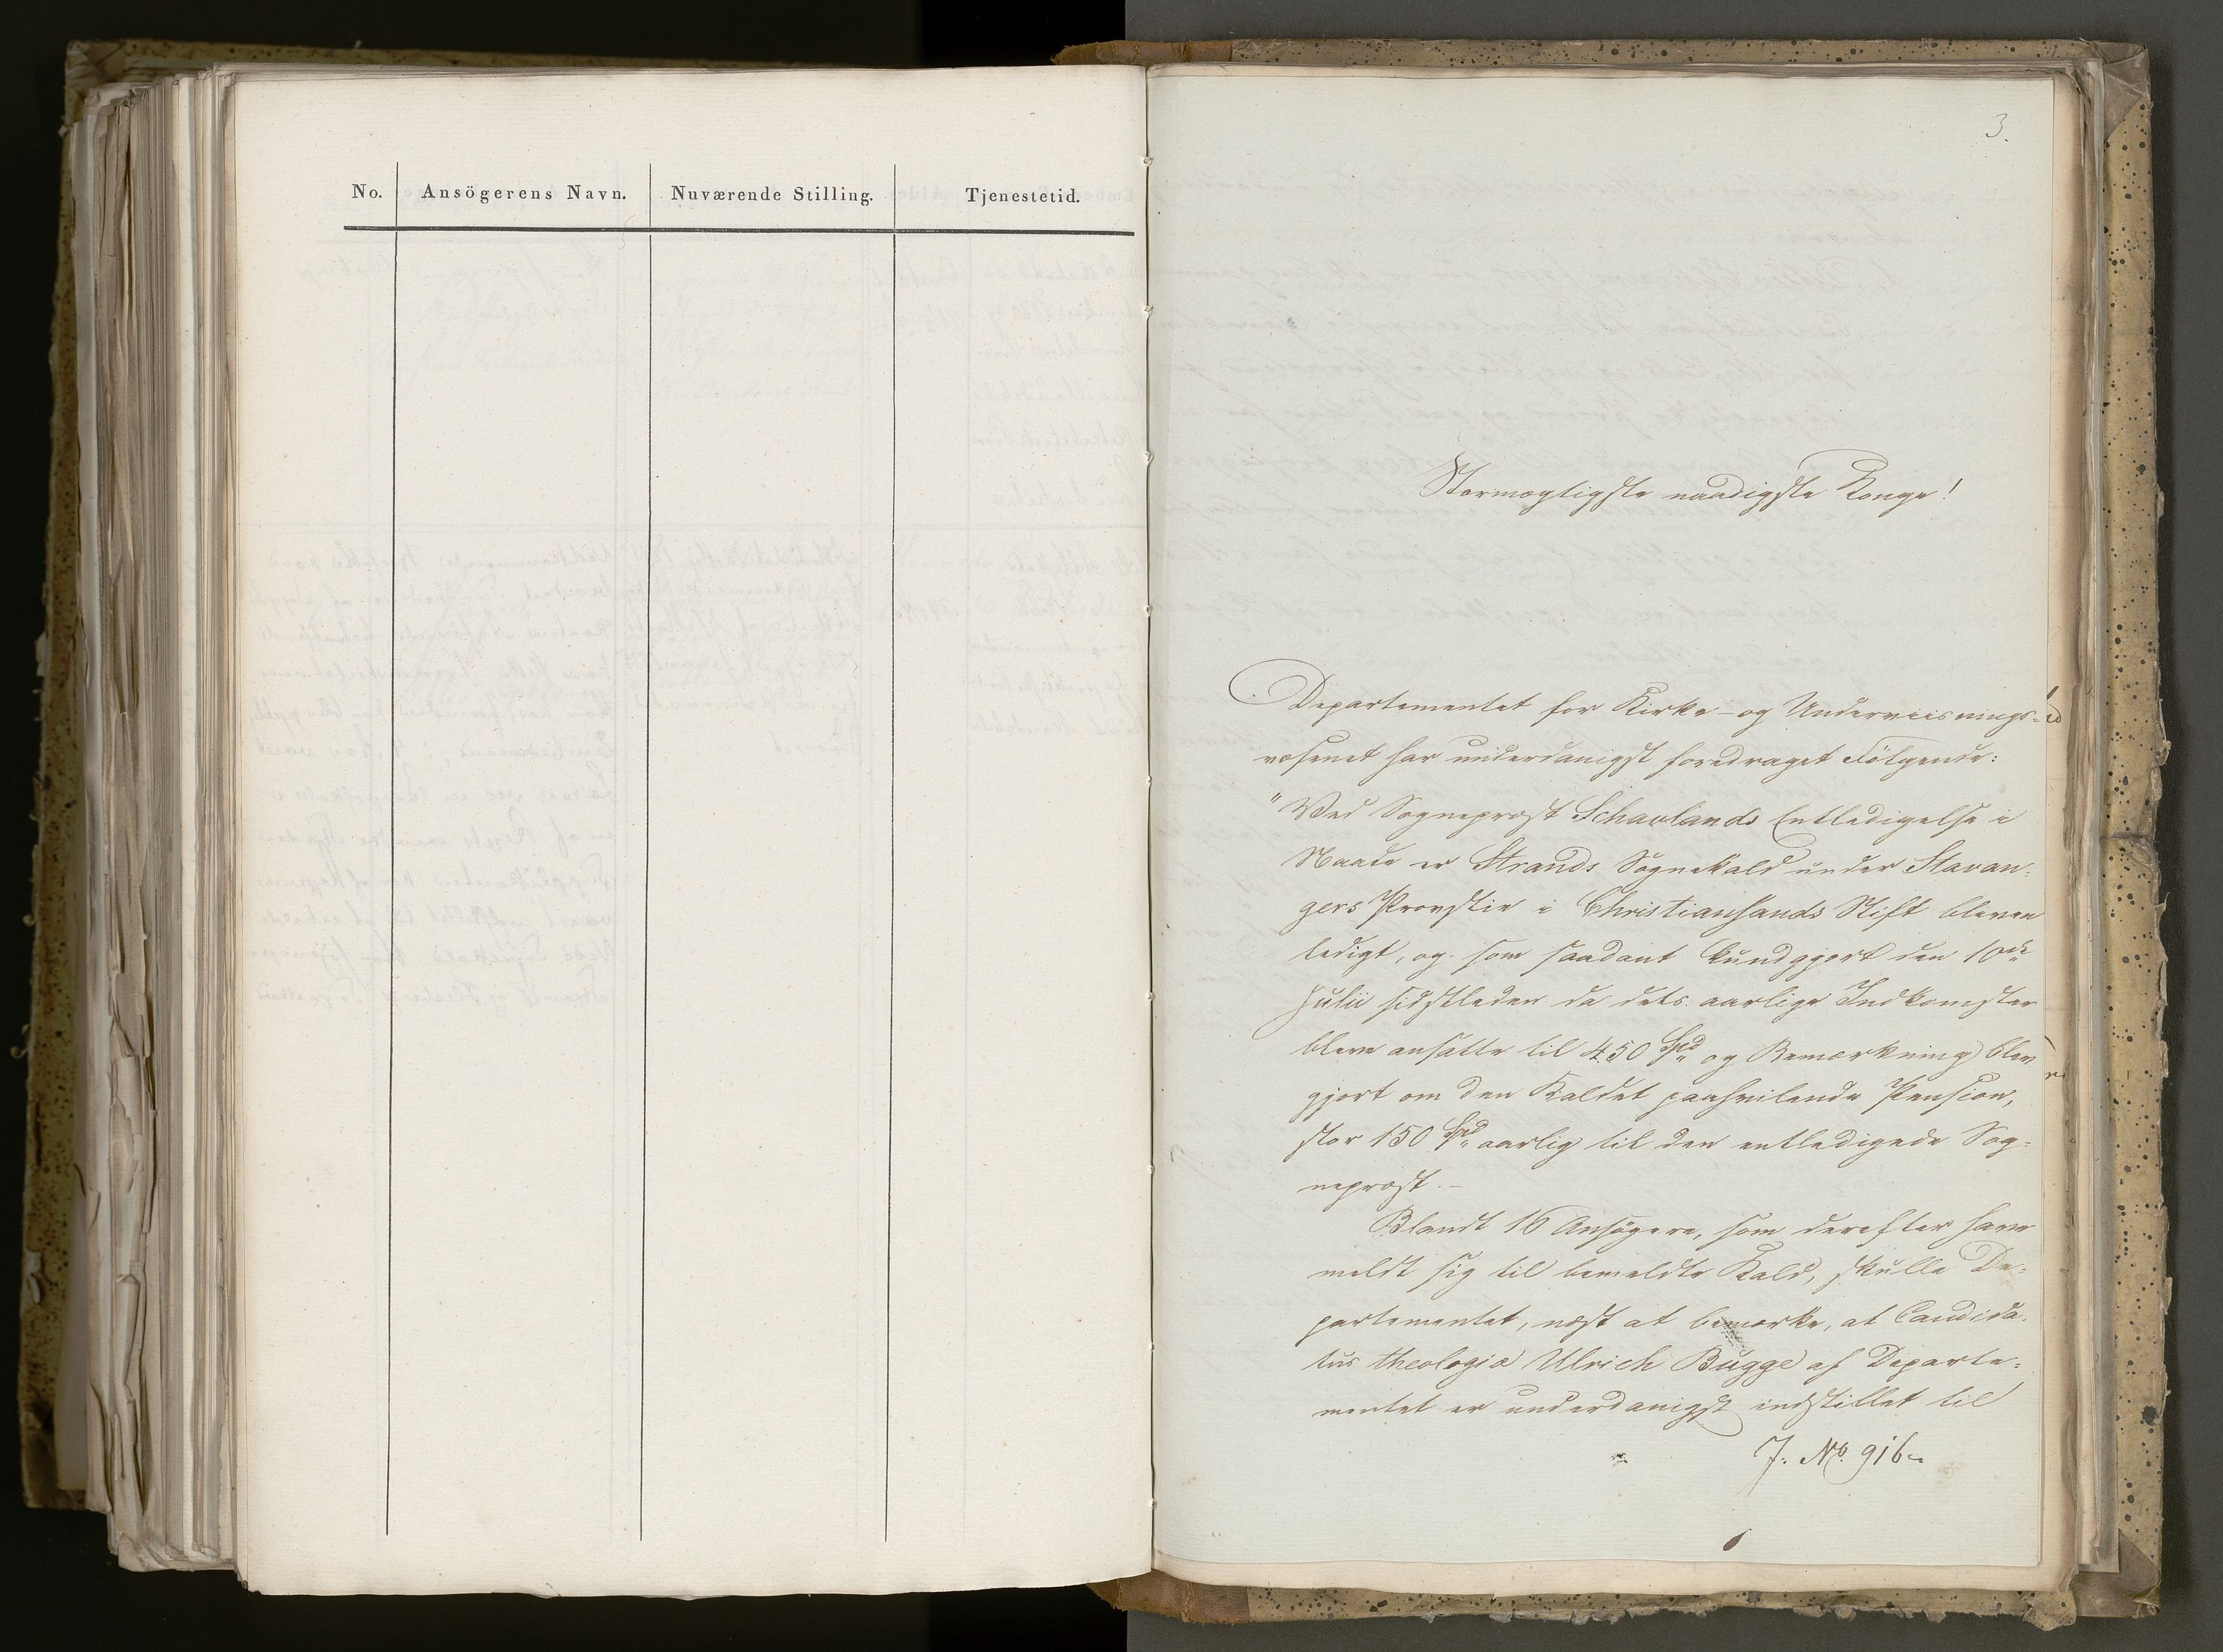 No. Ansögerens Navn. Nuværende Stilling. Tjenestetid.
3.
Stormægtigste naadigste Konge!
Departementet for Kirke- og Underviisnings=
væsenet har underdanigst foredraget Følgende:
"Ved Sognepræst Schavlands Entledigelse i
Naade er Strands Sognekald under Stavan=
gers Provstie i Christiansands Stift bleven
ledigt, og som saadant kundgjort den 10de
Julii sidstleden da dets aarlige Indkomster
bleve ansatte til 450 Spd og Bemærkning blev
gjort om den Kaldet paahvilende Pension,
stor 150 Spd aarlig til den entledigede Sog=
nepræst.-
Blandt 16 Ansøgere, som derefter have
meldt sig til bemeldte Kald, skulle De=
partementet, næst at bemærke, at Candida=
tus theologiæ Ulrich Bugge af Departe=
mentet er underdanigst indstillet til
J. No. 916.